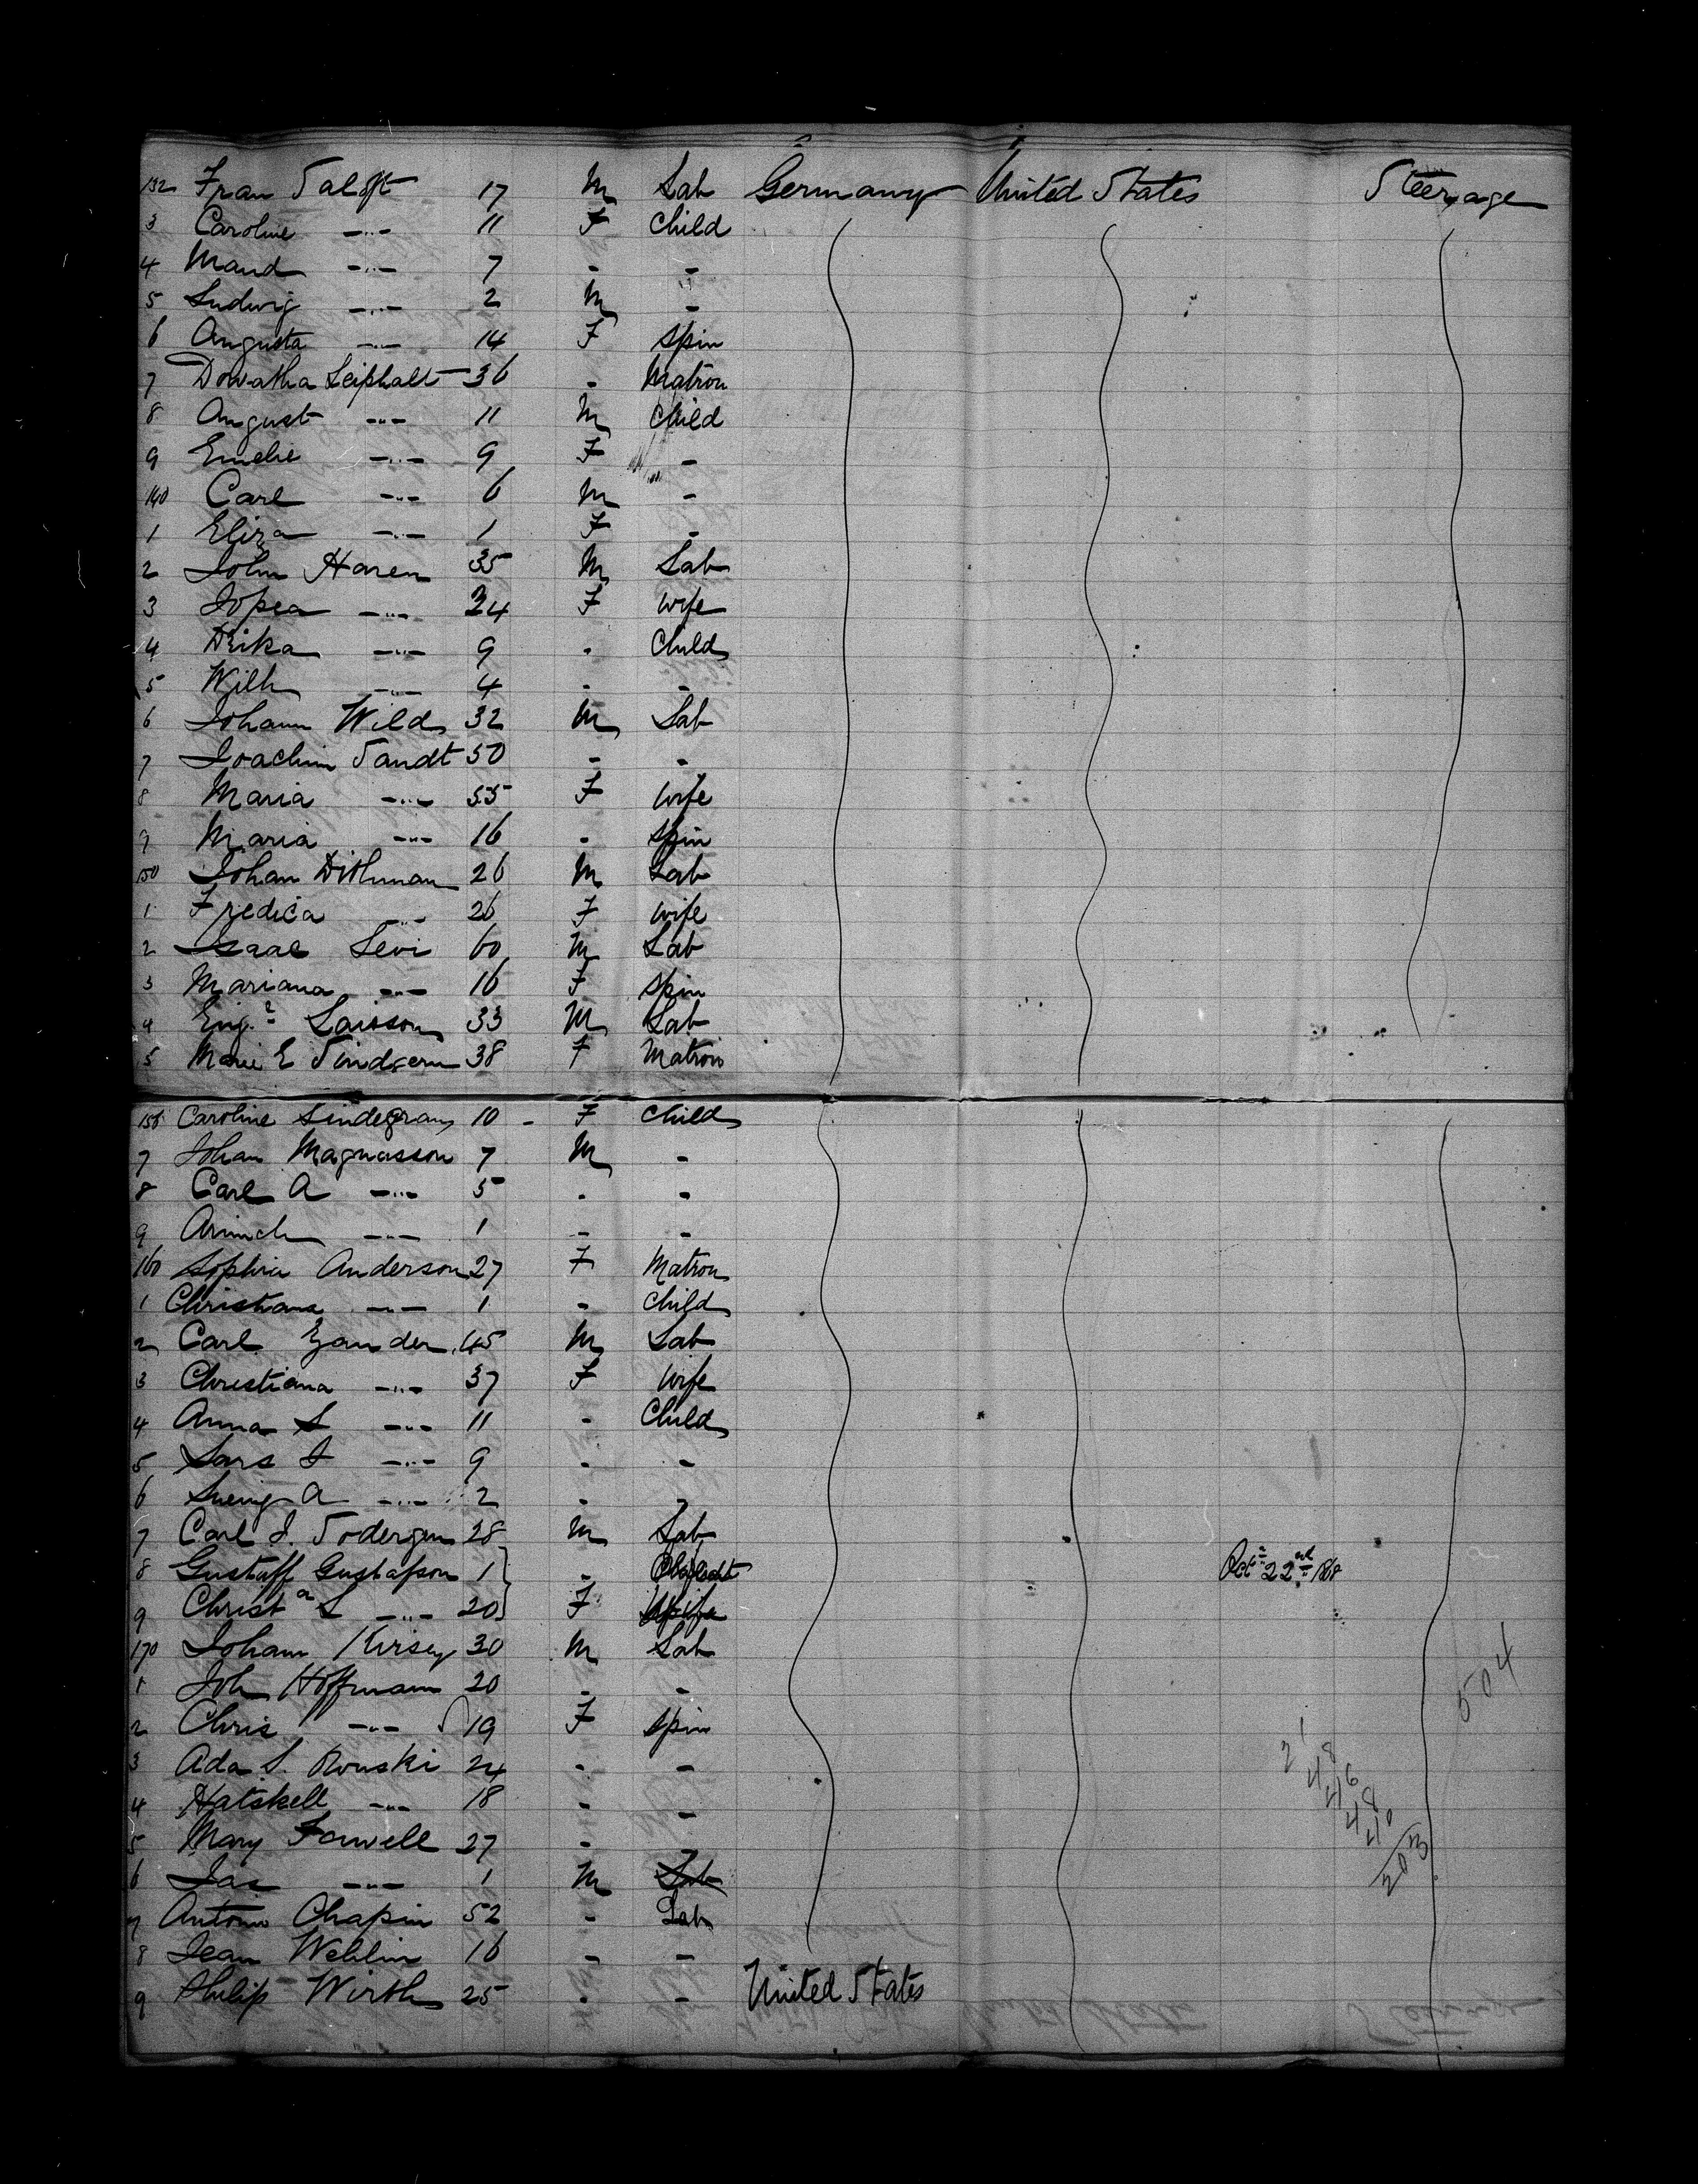 132 Fran Saloft 17 M Lab Germany United States Steerage
3 Caroline -"- 11 F Child
4 Maud -"- 7 - -
5 Ludwig -"- 2 M -
6 Augusta -"- 14 F Spin
7 Dorvatha Leiphalt 36 - Matron
8 August -"- 11 M Child
9 Emelie -"- 9 F -
140 Carl -"- 6 M -
1 Eliza -"- 1 F -
2 John Haren 35 M Lab
3 Sopea -"- 24 F Wife
4 Drika -"- 9 - Child
5 Wilh -"- 4 - -
6 Johann Wild 32 M Lab
7 Joachim Sandt 50 - -
8 Maria -"- 55 F Wife
9 Maria -"- 16 - Spin
150 Johan Dithman 26 M Lab
1 Fredica -"- 26 F Wife
2 Isaac Levi 60 M Lab
3 Mariana -"- 16 F Spin
4 Eng.r Laisson 33 M Lab
5 Marie E 38 F Matron
156 Caroline Sindegran 10 - F Child
7 Johan Magnusson 7 M -
8 Carl A -"- 5 - -
9 -"- 1 - -
160 Sophia Anderson 27 F Matron
1 Christiana -"- 1 - Child
2 Carl Zander 45 M Lab
3 Christiana -"- 37 F Wife
4 Anna S -"- 11 - Child
5 Lars I -"- 9 - -
6 A -"- 2 - -
7 Carl I. Sodergen 28 M Lab
8 Gustaff Gustafson 1 - Oct 22nd 1868
9 Christa S -"- 20 F Wife
170 Johann Kirsey 30 M Lab
1 Joh Hoffmann 20 - -
2 Chris -"- 19 F Spin
3 Ada S. Rouski 24 - -
4 Hatskell -"- 18 - -
5 Mary Fowell 27 - -
6 Jas -"- 1 M Lab
7 Antoin Chapin 52 - Lab
8 Jean Wehlin 16 - -
9 Philip Wirth 25 - - United States
504
21
48
46
48
40
203